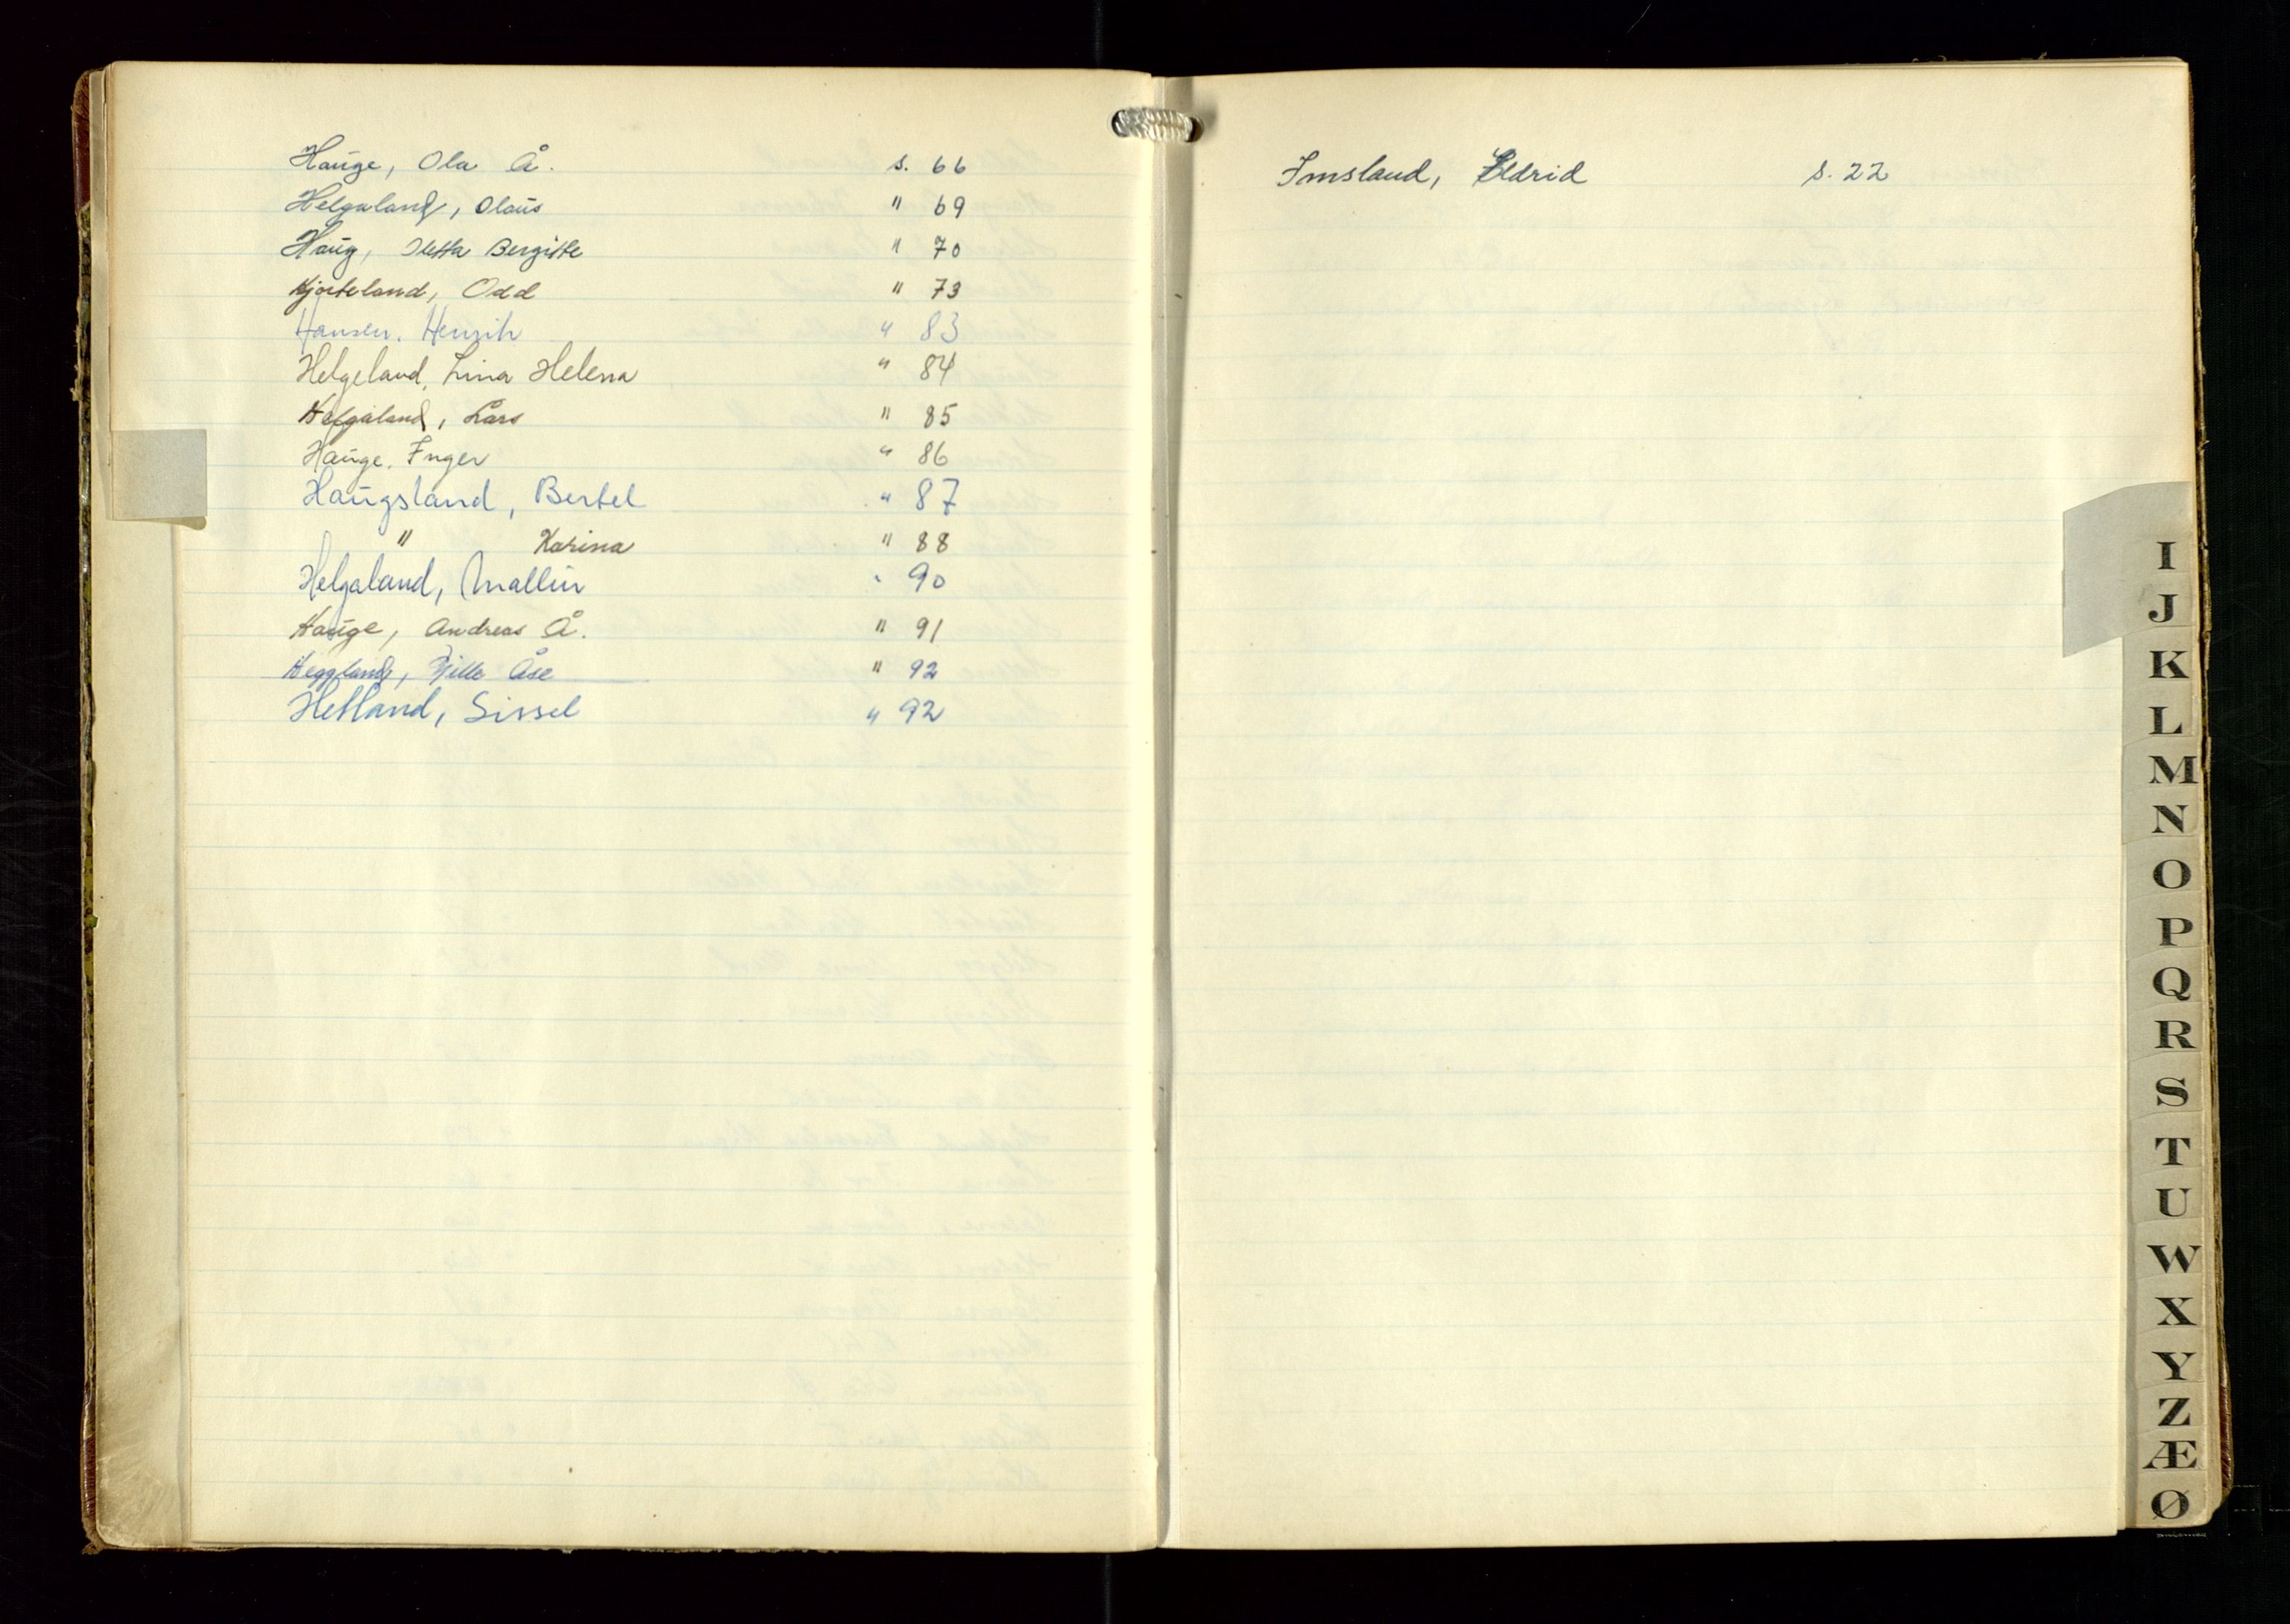 Hauge, Ola Å. s. 66
Helgaland, Olaus " 69
Haug, Oletta Bergitte " 70
Hjorteland, Odd " 73
Hansen, Henrik " 83
Helgeland, Lina Helena " 84
Helgaland, Lars " 85
Hauge, Inger " 86
Haugsland, Bertel " 87
" Karina " 88
Helgaland, Mallin " 90
Hauge, Andreas Å. " 91
Heggland, Åse " 92
Hetland, Sissel " 92
Imsland, Eldrid s. 22
I
J
K
L
M
N
O
P
Q
R
S
T
U
W
X
Y
Z
Æ
Ø